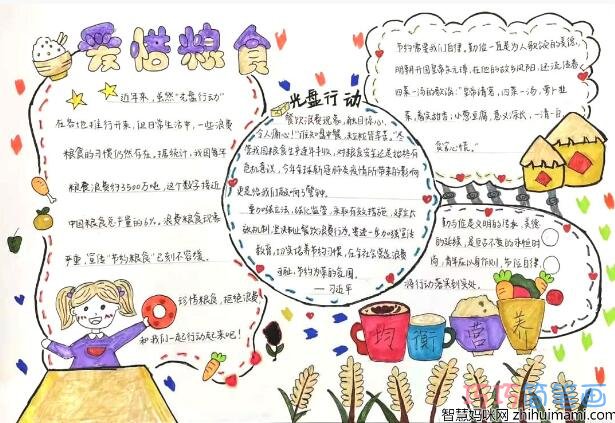 爱惜粮食
近年来，虽然“光盘行动”
在各地推行开来，但日常生活中，一些浪费
粮食的习惯仍然存在，据统计，我国每年
粮食浪费约3500万吨，这个数字接近
中国粮食总产量的6%。浪费粮食现象
严重，宣传“节约粮食”已刻不容缓。
珍惜粮食，拒绝浪费
和我们一起行动起来吧！
光盘行动
餐饮浪费现象，触目惊心、
令人痛心！“谁知盘中餐，粒粒皆辛苦。”尽
管我国粮食生产连年丰收，对粮食安全还是始终有
危机意识，今年全球新冠肺炎疫情所带来的影响
更是给我们敲响了警钟。
要加强立法，强化监管，采取有效措施，建立长
效机制，坚决制止餐饮浪费行为。要进一步加强宣传
教育，切实培养节约习惯，在全社会营造浪费
可耻，节约为荣的氛围。
— 习近平
节约常是我们自律。勤俭一直是为人歌颂的美德，
明朝开国皇帝朱元璋，在他的故乡凤阳，还流传着
四菜一汤的歌谣：“皇帝请客，四菜一汤，萝卜韭
菜，着实甜香；小葱豆腐，意义深长，一清二
贪官心慌。”
勤与俭是文明的传承，美德
的延续，是亘古不变的永恒时
尚，青年应从自身做起，节俭自律
将行动落实到实处。
均衡营养
巧巧简笔画
智慧妈咪网 zhihuimami.com